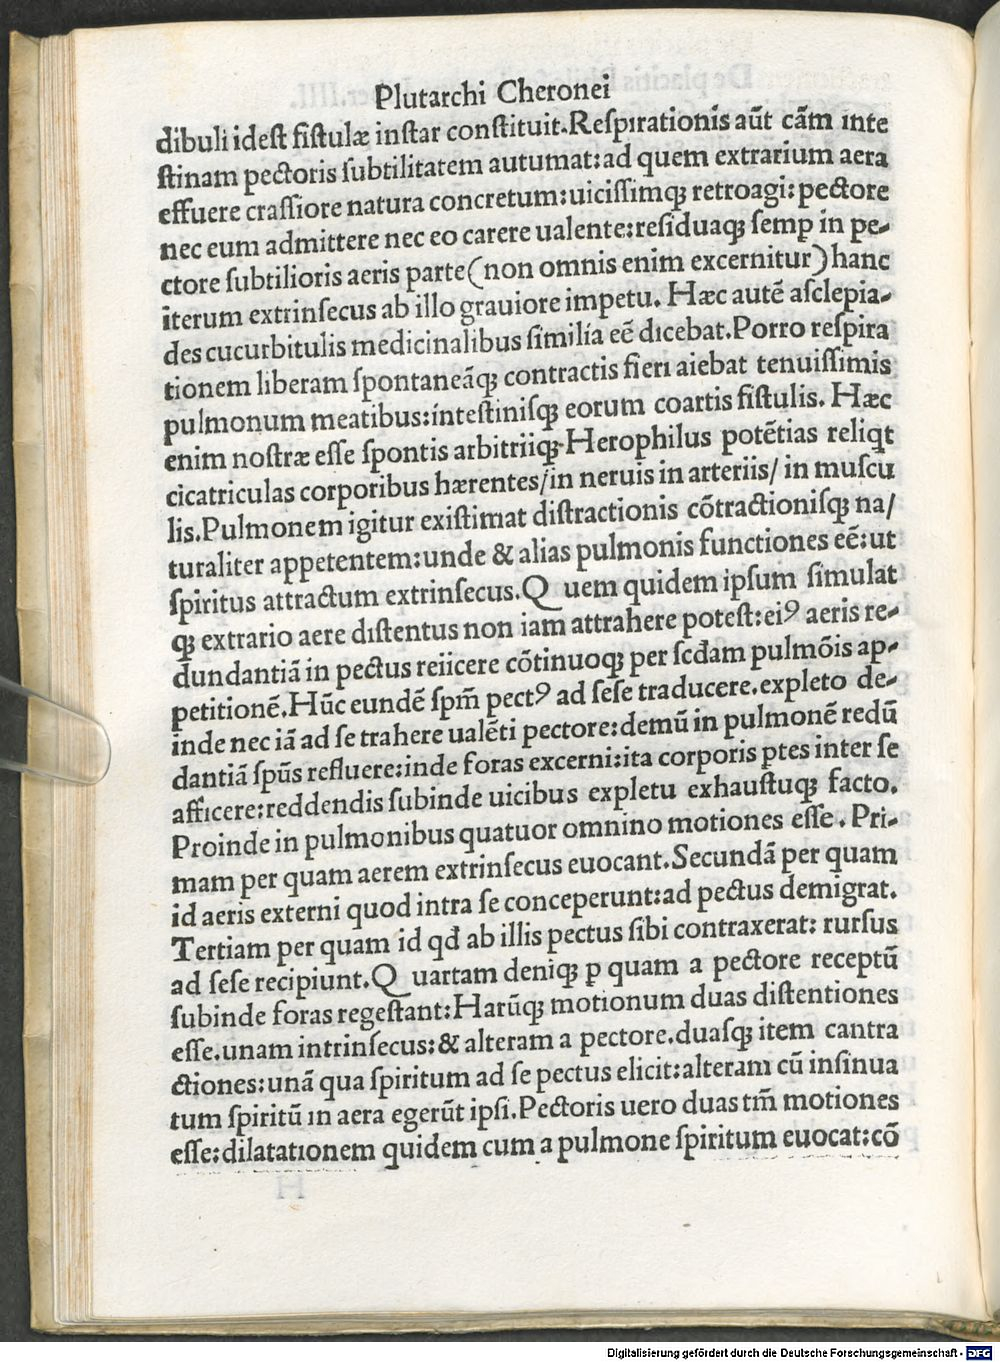 Plutarchi Cheronei
dibuli idest fistulæ instar constituit.Respirationis aūt cām inte
stinam pectoris subtilitatem autumat:ad quem extrarium aera
effuere crassiore natura concretum:uicissimq; retroagi:pectore
nec eum admittere nec eo carere ualente:residuaq; semp in pe-
ctore subtilioris aeris parte(non omnis enim excernitur)hanc
iterum extrinsecus ab illo grauiore impetu. Hæc autē asclepia-
des cucurbitulis medicinalibus similia eē dicebat.Porro respira
tionem liberam spontaneāq; contractis fieri aiebat tenuissimis
pulmonum meatibus:intestinisq; eorum coartis fistulis. Hæc
enim nostræ esse spontis arbitriiq; Herophilus potētias reliqt
cicatriculas corporibus hærentes/in neruis in arteriis/ in muscu
lis.Pulmonem igitur existimat distractionis cōtractionisq; na/
turaliter appetentem:unde & alias pulmonis functiones eē:ut
spiritus attractum extrinsecus.Q uem quidem ipsum simulat
q; extrario aere distentus non iam attrahere potest:eiꝰ aeris re-
dundantiā in pectus reiicere cōtinuoq; per scđam pulmōis ap-
petitionē.Hūc eundē spm̄ pectꝰ ad sese traducere.expleto de-
inde nec iā ad se trahere ualēti pectore:demū in pulmonē redū
dantiā spūs refluere:inde foras excerni:ita corporis ptes inter se
afficere:reddendis subinde uicibus expletu exhaustuq; facto.
Proinde in pulmonibus quatuor omnino motiones esse. Pri-
mam per quam aerem extrinsecus euocant.Secundā per quam
id aeris externi quod intra se conceperunt:ad pectus demigrat.
Tertiam per quam id qđ ab illis pectus sibi contraxerat: rursus
ad sese recipiunt.Q uartam deniq; p quam a pectore receptū
subinde foras regestant:Harūq; motionum duas distentiones
esse.unam intrinsecus:& alteram a pectore.duasq; item cantra
ctiones:unā qua spiritum ad se pectus elicit:alteram cū insinua
tum spiritū in aera egerūt ipsi.Pectoris uero duas tm̄ motiones
esse:dilatationem quidem cum a pulmone spiritum euocat:cō
Digitalisierung gefördert durch die Deutsche Forschungsgemeinschaft - DFG